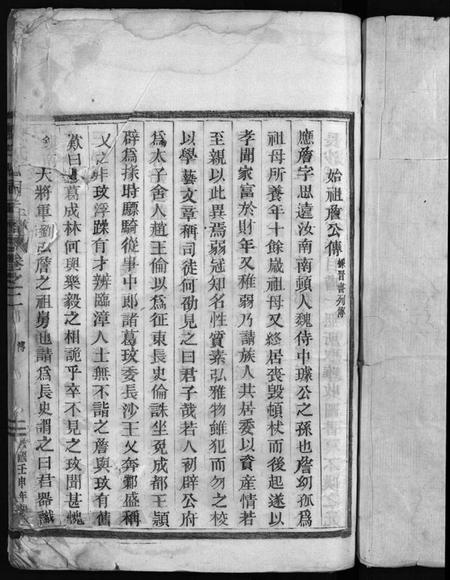 始祖詹公傳 採晉書列傳
應詹字思遠汝南南頓人魏侍中璩公之孫也詹幼孤為
祖母所養年十餘歲祖母又終居喪毀頓杖而後起遂以
孝聞家富於財年又稚弱乃請族人共居委以資產情若
至親以此異焉弱冠知名性質素弘雅物雖犯而勿之校
以學藝文章稱司徒何劭見之曰君子哉若人初辟公府
為太子舍人趙王倫以為征東長史倫誅坐免成都王穎
辟為掾時驃騎從事中郎諸葛玫委長沙王乂奔鄴盛稱
乂之非玫浮躁有才辨臨漳人士無不詣之詹與玫有舊
歎曰諸葛成林何與樂毅之相詭乎卒不見之玫聞甚愧
天將軍劉弘詹之祖舅也請為長史謂之曰君器識
卷之二
傳
二
民國壬申年